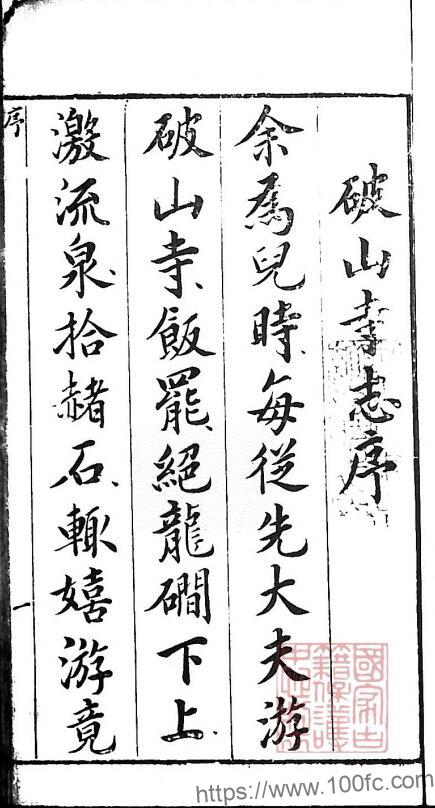 破山寺志序
余爲兒時、每從先大夫游
破山寺、飯罷、絕龍磵下上、
激流泉、拾赭石、輒嬉游竟
序
一
國家古
籍保護
https://www.100fc.com